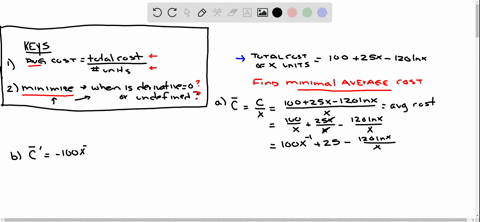 KEYS
1) AVG COST = total cost ←
# units ←
2) minimize → when is derivative=0?
or undefined?
→ TOTAL COST OF X UNITS = 100 + 25x - 120lnx
FIND MINIMAL AVERAGE COST
a) C̄ = C/x = (100+25x-120lnx)/x = avg cost
= 100/x + 25x/x - 120lnx/x
= 100x⁻¹ + 25 - 120lnx/x
b) C̄' = -100x⁻